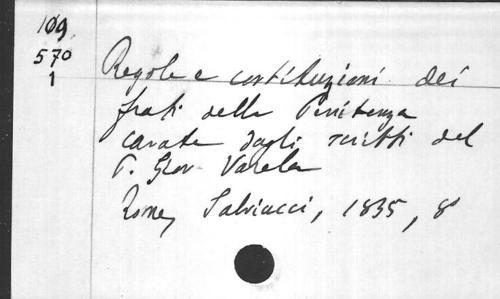 109
570
1
Regole e costituzioni dei
frati della Penitenza
cavate dagli scritti del
P. Giov. Varela
Roma, Salviucci, 1835, 8°